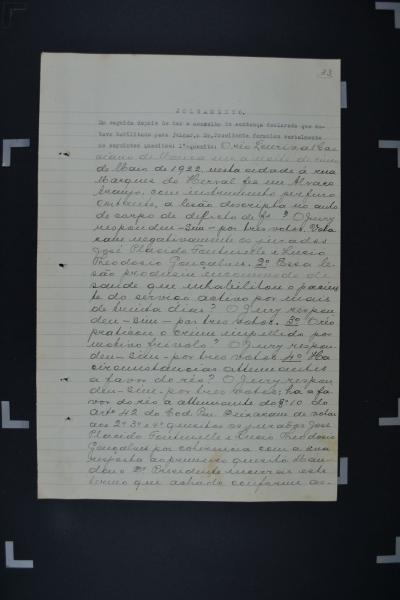 23
JULGAMENTO.
Em seguida depois de ter o conselho de sentença declarado que es-
tava habilitado para julgar, o Dr. Presidente formulou verbalmente
os seguintes quesitos: 1º quesito: O réo Lourival Cae-
tano de na noite de
de Maio de 1922, nesta cidade á rua
Marquez do Herval fez em Alvaro
Araujo, com instrumento perfuro
cortante, a lesão descripta no auto
de corpo de delicto de fs ? O Jury
respondeu - Sim - por tres votos. Vota-
ram negativamente os jurados
José Placido Fontenelle e Lucio
Theodosio Gonçalves. 2º Essa le-
são produsiu incommodo de
saúde que inhabilitou o pacien-
te do serviço activo por mais
de trinta dias? O Jury respon-
deu - Sim - por tres votos. 3º O réo
praticou o crime impellido por
motivo frivolo? O Jury respon-
deu - Sim - por tres votos. 4º Ha
circumstancias attenuantes
a favor do réo? O Jury respon-
deu - Sim - por tres votos; ha a fa-
vor do réo a attenuante do § 10 do
Artº 42 do Cod. Pen. Deixaram de votar
aos 2º 3º e 4º quesitos os jurados José
Placido Fontenelle e Lucio Theodosio
Gonçalves por coherencia com a sua
resposta ao primeiro quesito. Man-
dou o Dr. Presidente lavrar este
termo que achado conforme as-